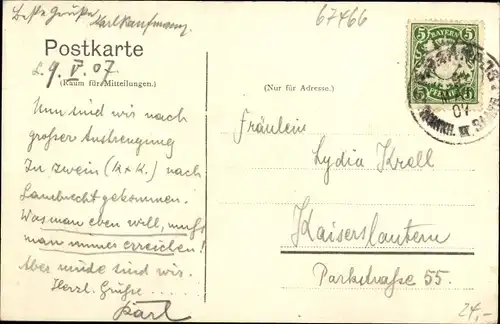 Beste Grüße Karl Kaufmann
67466
Postkarte
L. 9. V. 07
(Raum für Mitteilungen.)
(Nur für Adresse.)
5 BAYERN 5
PFENNIG
07
Nun sind wir nach
großer Anstrengung
In zwein (K+K.) nach
Lambrecht gekommen.
Was man eben will, muß
man immer erreichen!
Aber müde sind wir.
Herzl. Grüße
Karl
Fräulein
Lydia Kroll
Kaiserslautern
Parkstraße 55.
24,-